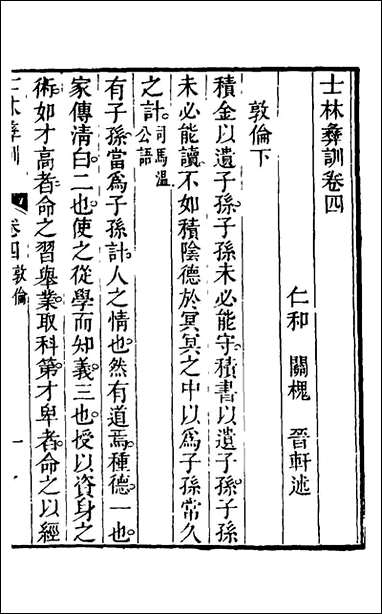 士林彝訓卷四
仁和 關槐 晉軒述
敦倫下
積金以遺子孫子孫未必能守積書以遺子孫子孫
未必能讀不如積陰德於冥冥之中以爲子孫常久
之計司馬溫公語
有子孫當爲子孫計人之情也然有道焉種德一也
家傳清白二也使之從學而知義三也授以資身之
術如才高者命之習舉業取科第才卑者命之以經
士林彝訓 卷四敦倫 一